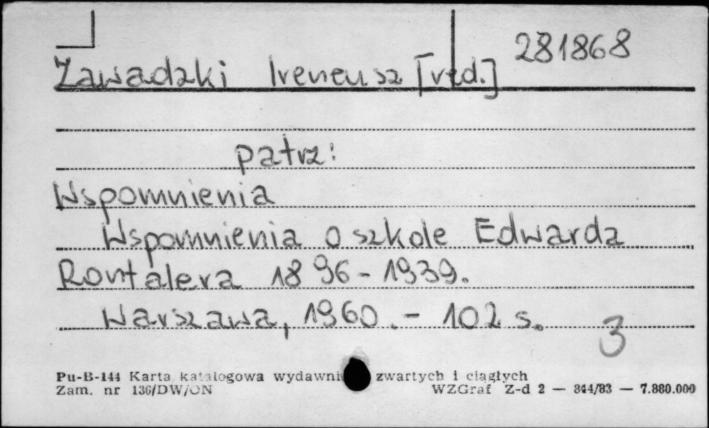 281868
Zawadzki Ireneusz [red.]
patrz:
Wspomnienia
Wspomnienia o szkole Edwarda
Rontalera 1896-1939.
Warszawa, 1960.- 102 s.
3
Pu-B-144 Karta katalogowa wydawni zwartych i ciągłych
Zam. nr 136/DW/ON WZGraf Z-d 2 — 844/83 — 7.880.000